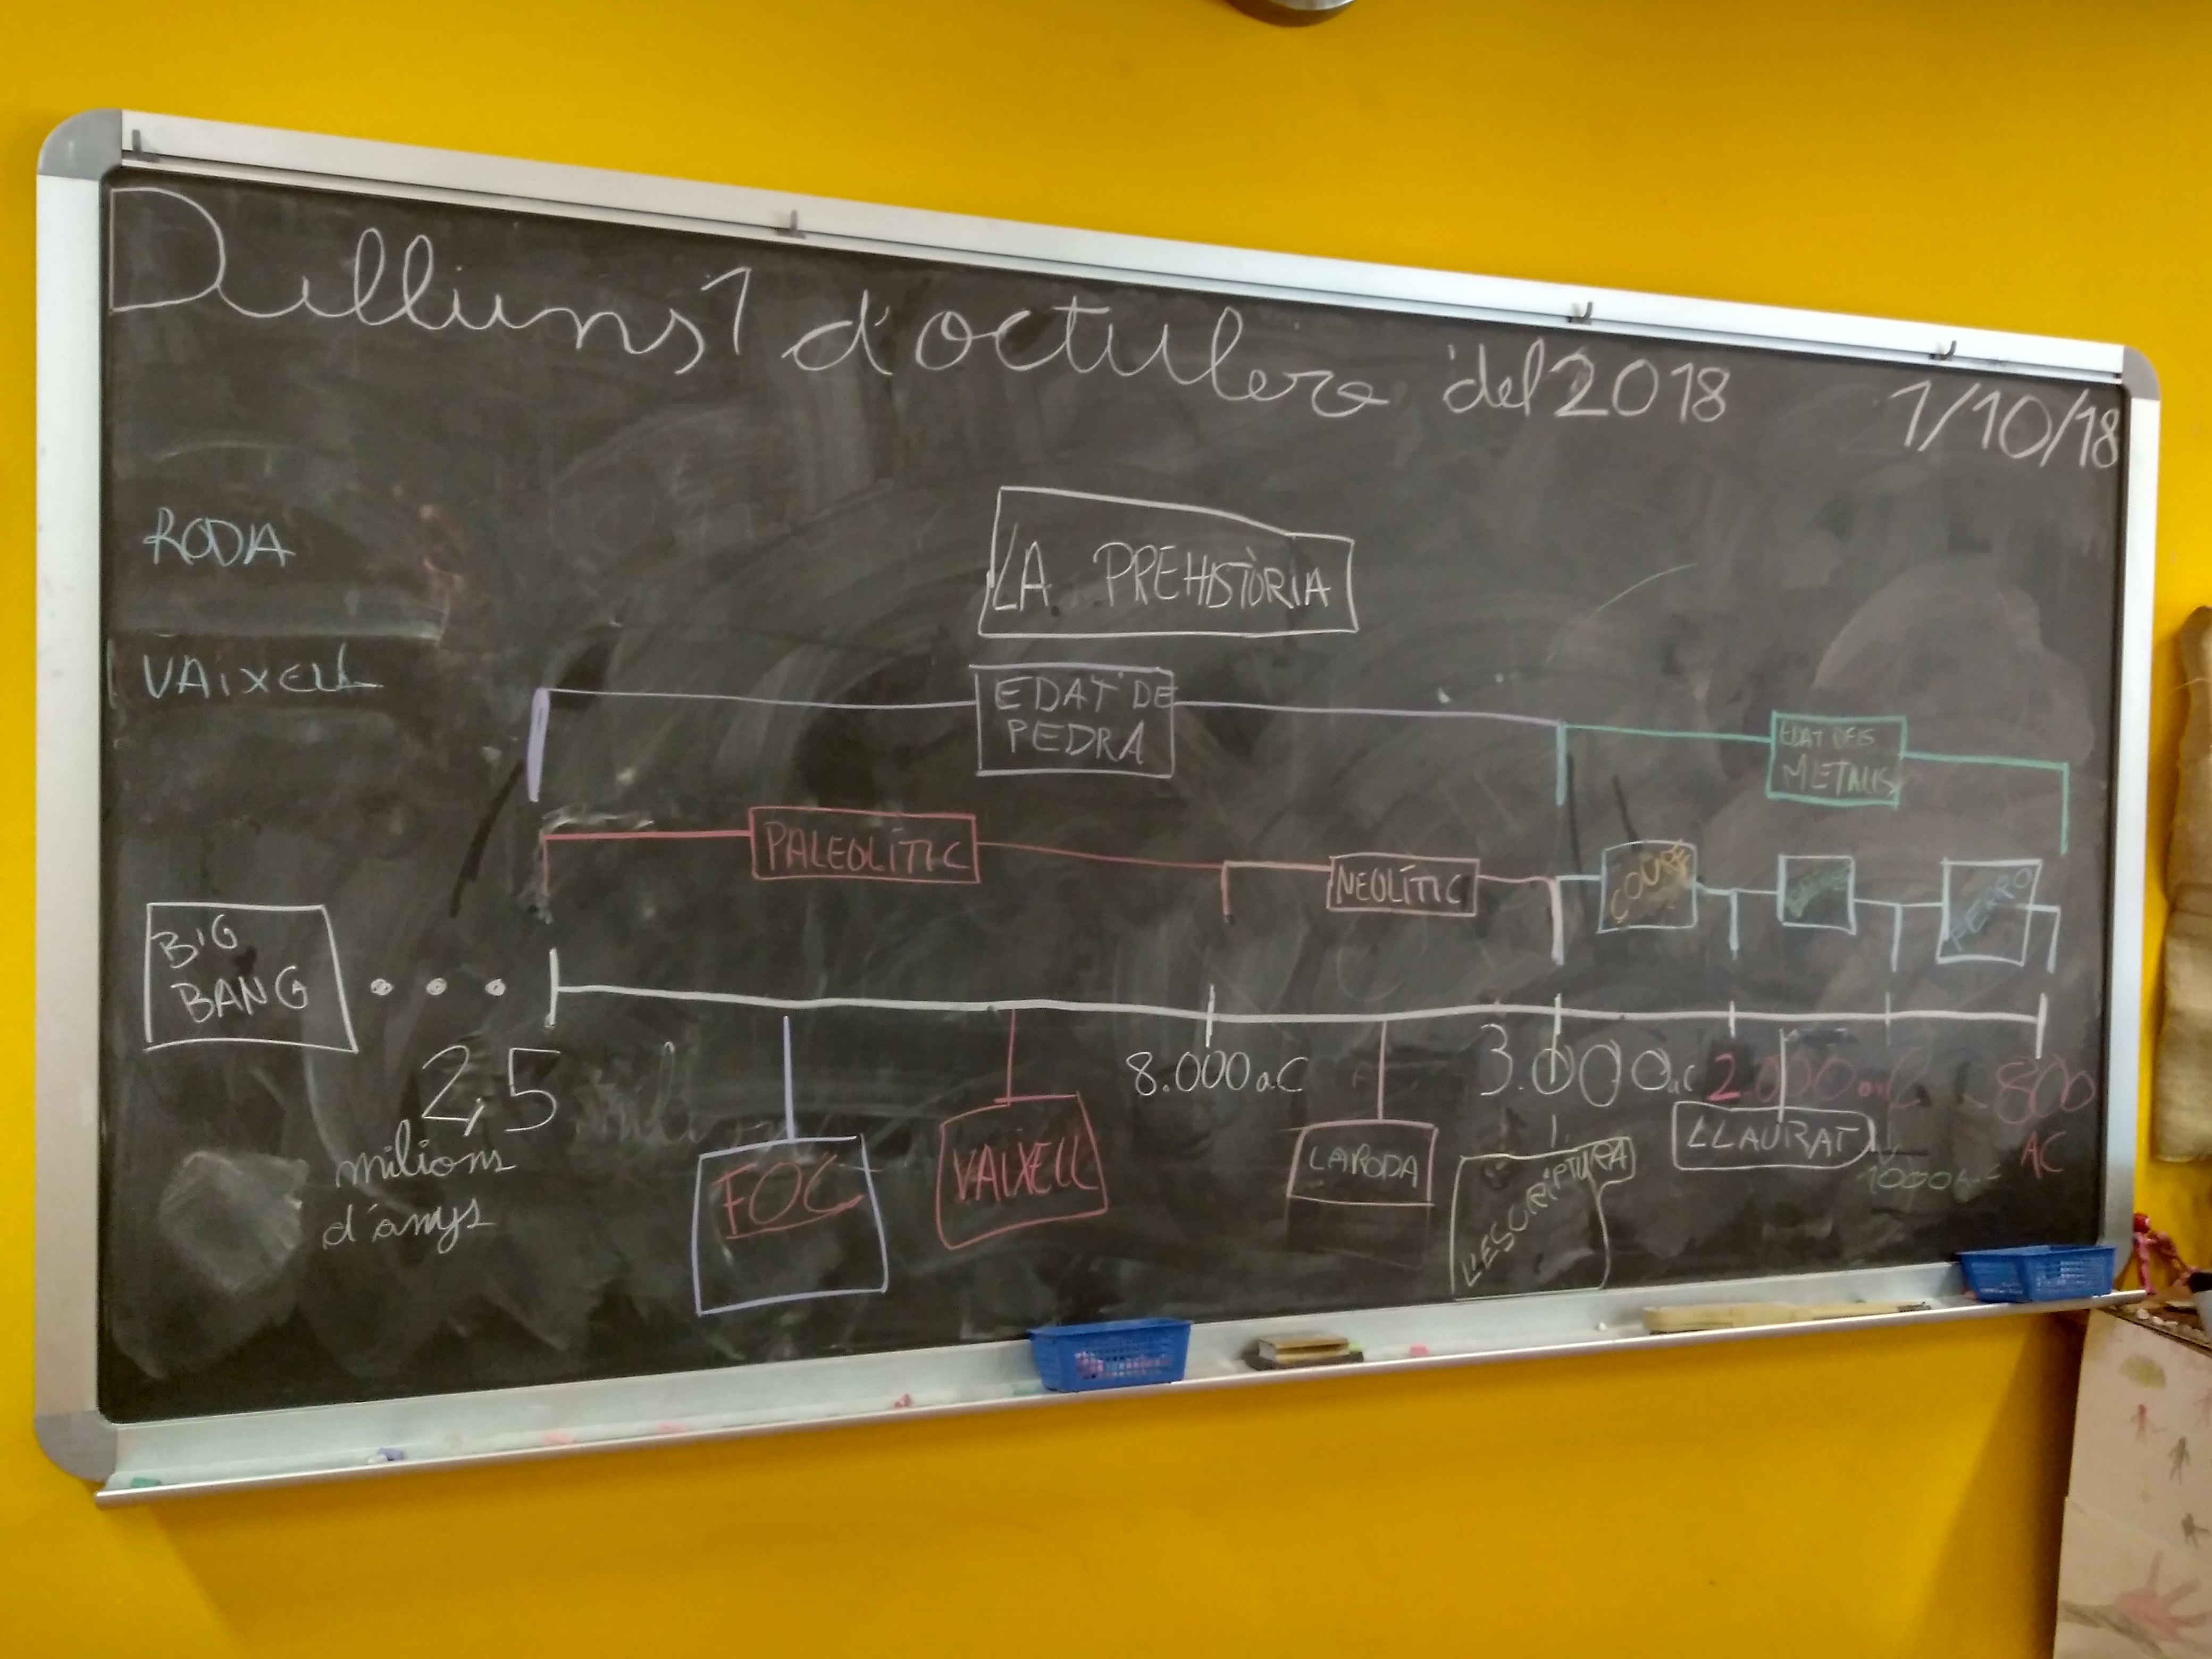 Dilluns 1 d'octubre del 2018
1/10/18
LA PREHISTÒRIA
RODA
VAIXELL
EDAT DE
PEDRA
EDAT DELS
METALLS
PALEOLÍTIC
NEOLÍTIC
COURE
FERRO
BIG
BANG
2,5
milions
d'anys
8.000 a.C
3.000 a.C
2.000 a.C
1000 a.C
800
AC
FOC
VAIXELL
LA RODA
L'ESCRIPTURA
LLAURAT